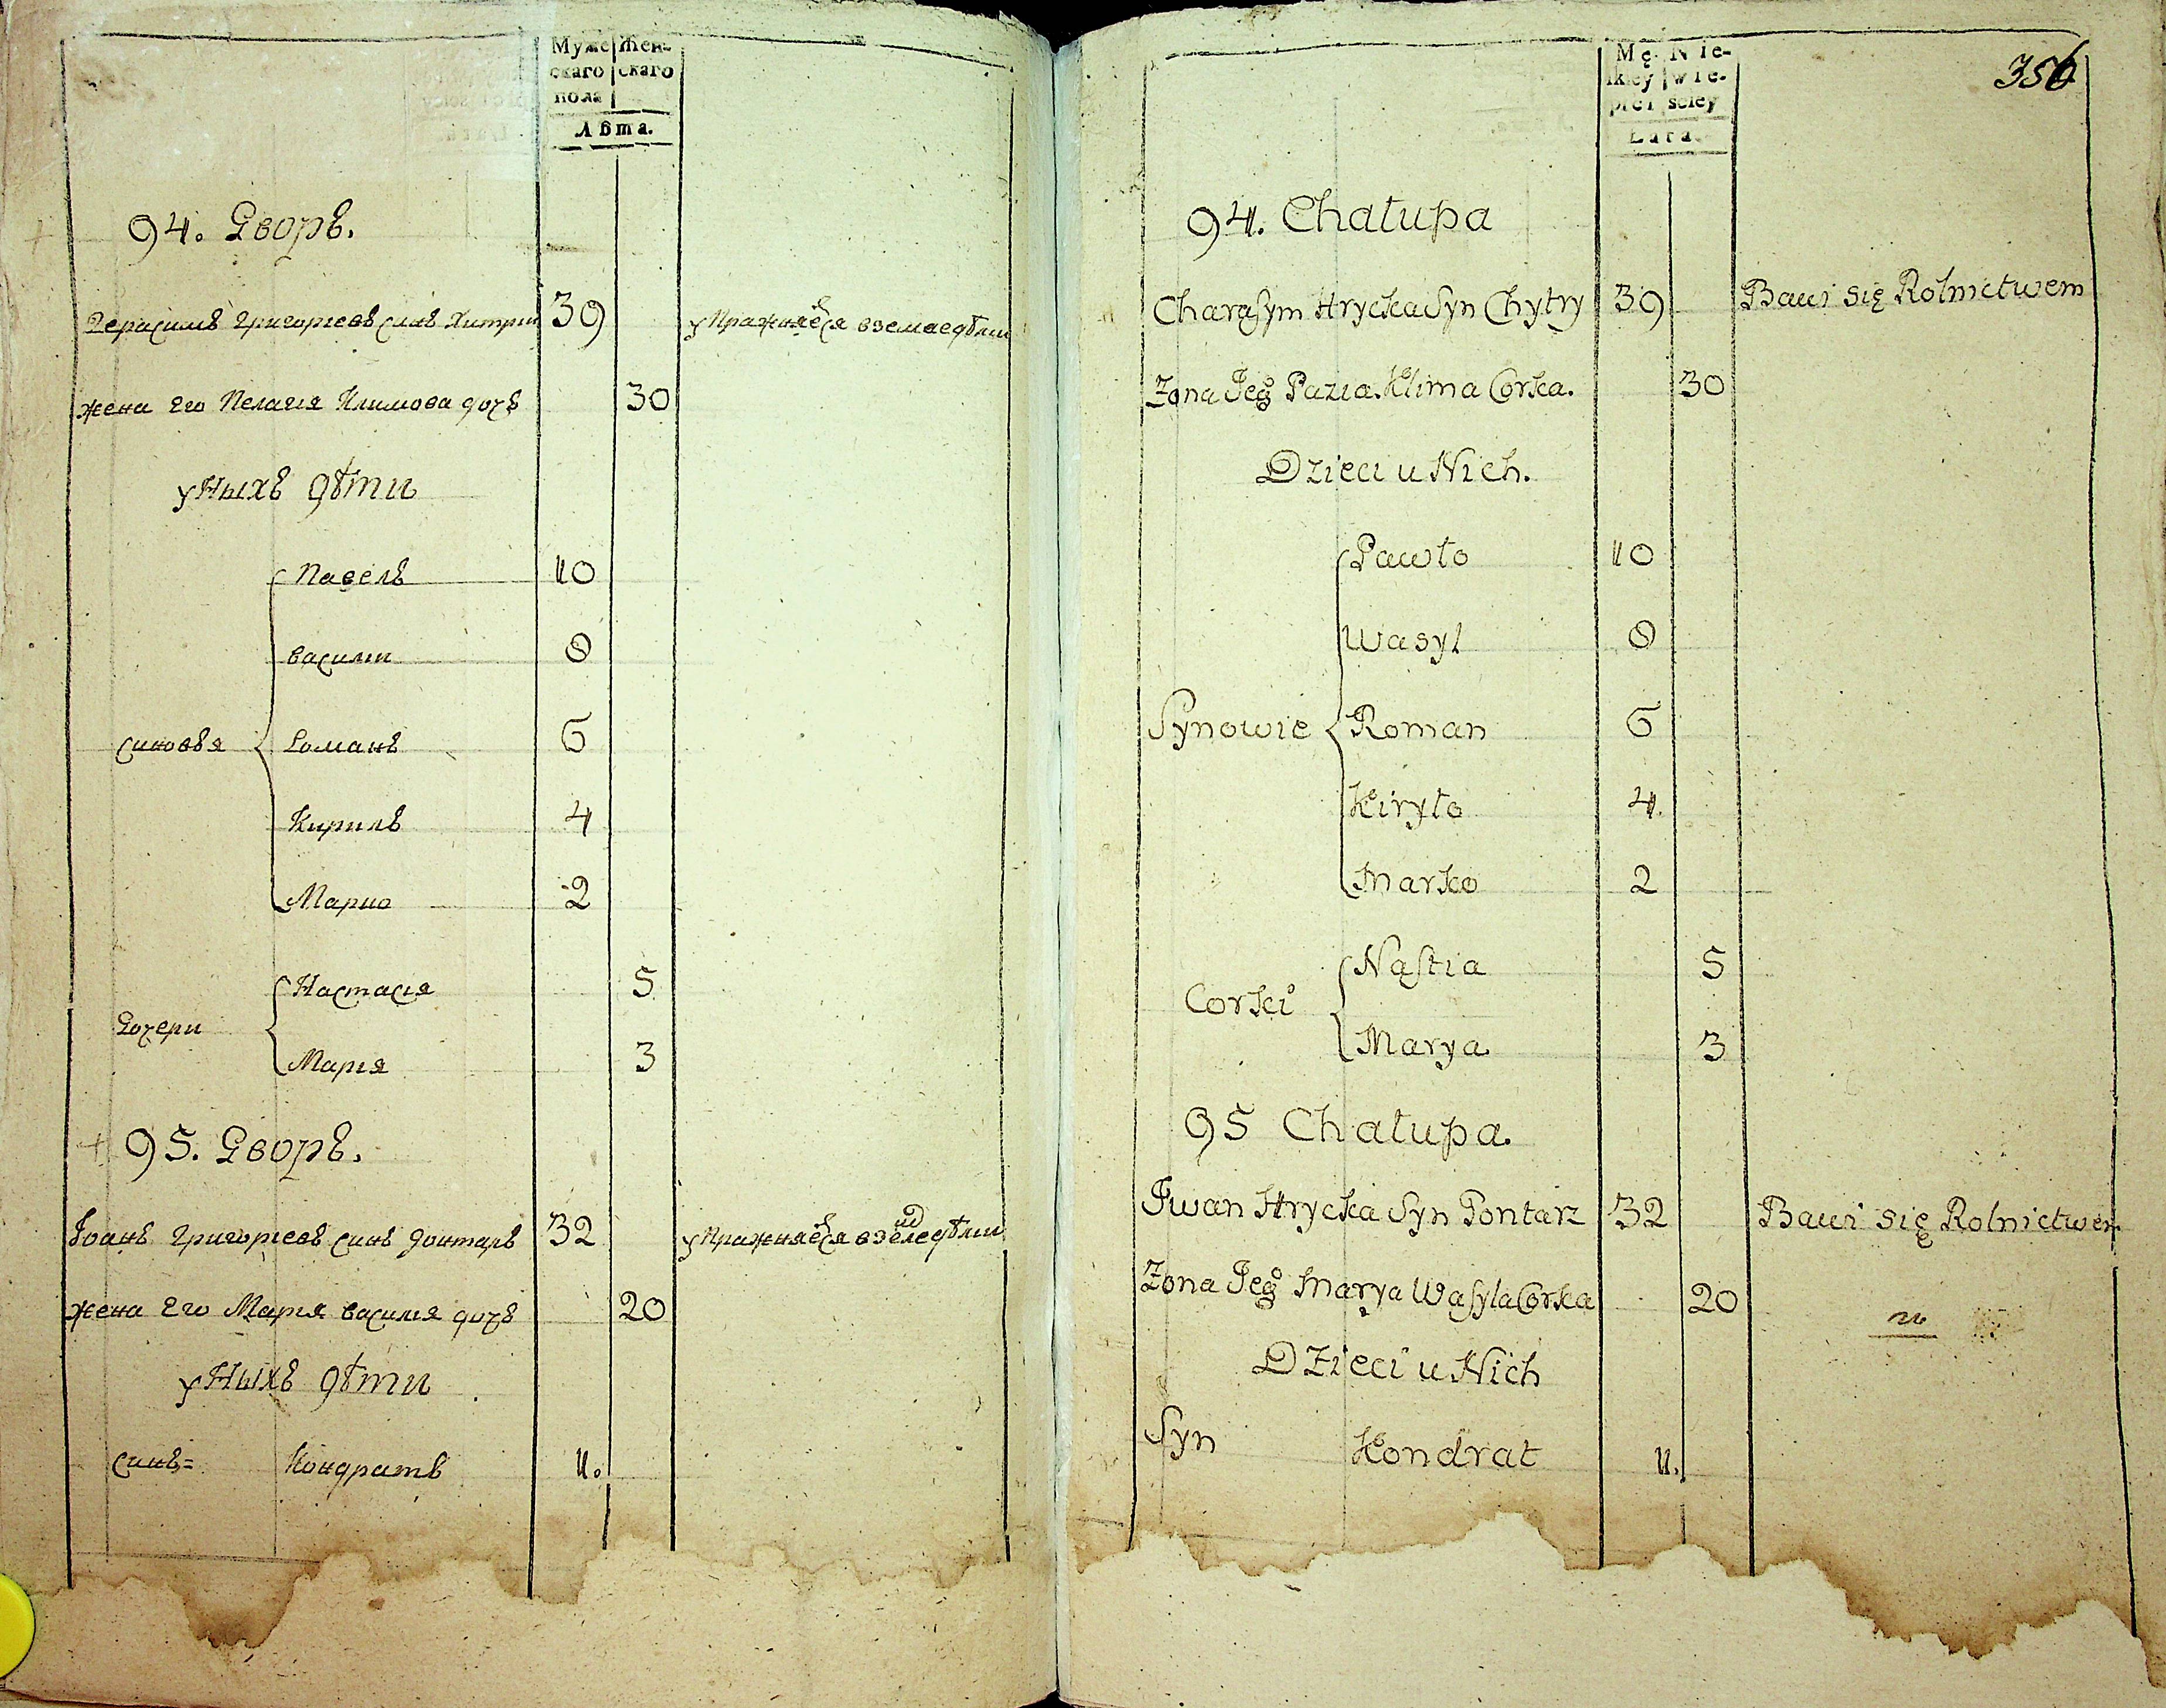 Муже Жен-
скаго скаго
пола
Лѣта.
94. Дворъ.
Герасимъ Григориевъ синъ Хитрии 39 упражняется вземледѣлии
жена его Пелагия Климова дочъ 30
уныхъ дѣти
Павелъ 10
василии 8
синовья Романъ 6
Кирилъ 4
Марко 2
Настасия 5
Дочери
Мария 3
95. Дворъ.
Іоанъ Григориевъ синъ Донтаръ 32 упражняется вземледѣлии
жена Его Мария василия дочъ 20
уныхъ дѣти
синъ= Кондратъ 11.
356
Mę- Nie-
skiey wie-
płci sciey
Lata
94. Chałupa
Charasym Hrycka Syn Chytry 39 Bawi się Rolnictwem
Zona Jego Pazia Klima Corka. 30
Dzieci u Nich.
Pawło 10
Wasyl 8
Synowie Roman 6
Kiryło 4.
Marko 2
Nastia 5
Corki
Marya 3
95 Chałupa.
Jwan Hrycka Syn Pontarz 32 Bawi się Rolnictwem
Zona Jego Marya Wasyla Corka 20
Dzieci u Nich
Syn Kondrat 11.